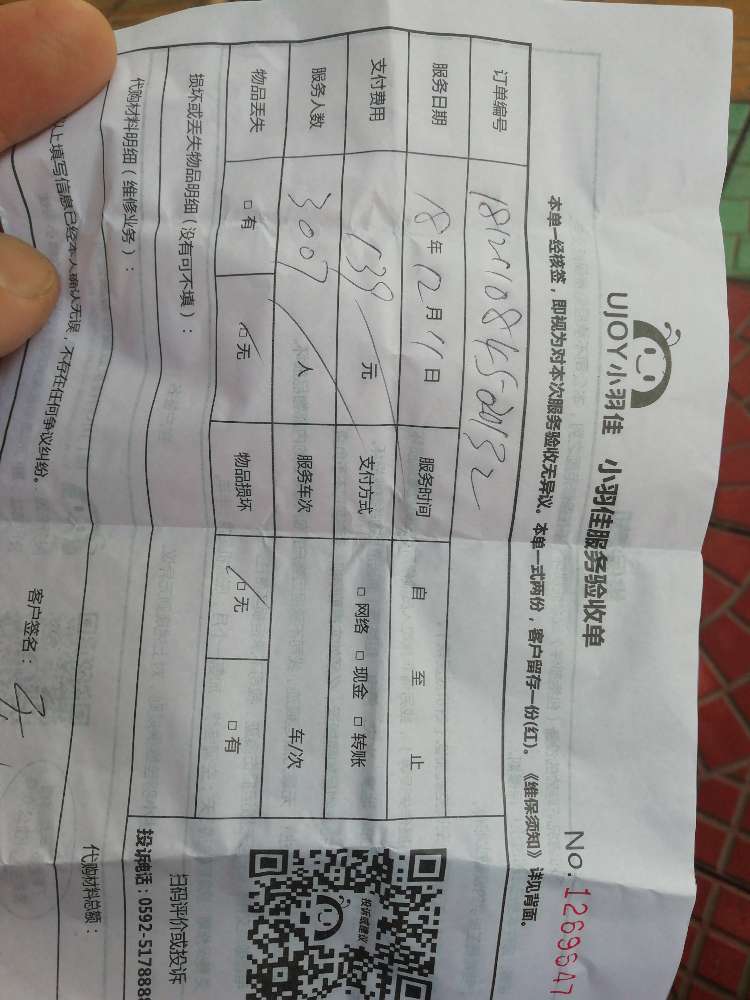 UJOY小羽佳 小羽佳服务验收单
No:1269647
本单一经核签，即视为对本次服务验收无异议。本单一式两份，客户留存一份(红)。《维保须知》详见背面。
订单编号
服务日期 18年12月11日 服务时间 自 至 止
支付费用 139元 支付方式 □网络 □现金 □转账
服务人数 3007 人 服务车次 车/次
物品丢失 □有 □无 物品损坏 □无 □有
损坏或丢失物品明细（没有可不填）：
代购材料明细（维修业务）：
代购材料总额：
上填写信息已经本人确认无误，不存在任何争议纠纷。
客户签名：
投诉或建议
扫码评价或投诉
投诉电话：0592-5178889